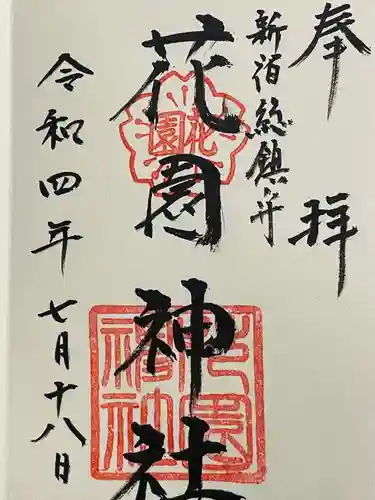 奉拝
新宿総鎮守
花園神社
令和四年七月十八日
花園
花園神社